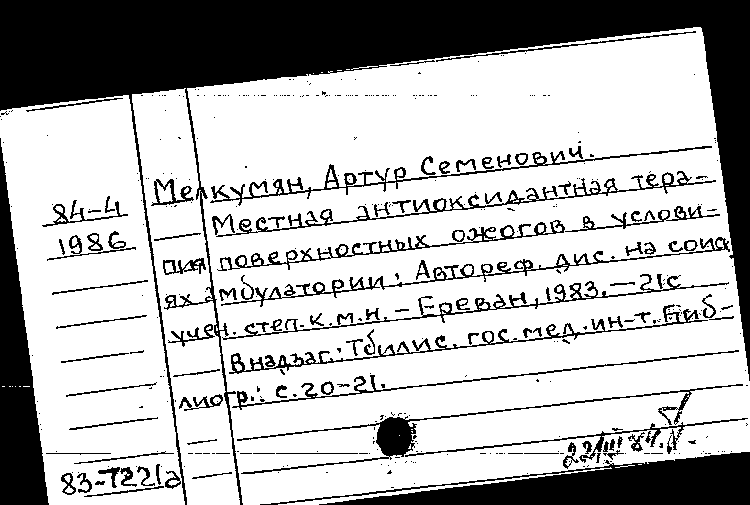 Мелкумян, Артур Семенович.
84-4
1986
Местная антиоксидантная тера-
пия поверхностных ожогов в услови-
ях амбулатории: Автореф. дис. на соиск
учен. степ. к.м.н. – Ереван, 1983. – 21с
В надзаг.: Тбилис. гос. мед. ин-т. Биб-
лиогр.: с. 20-21.
22/III 84.
83-7221а